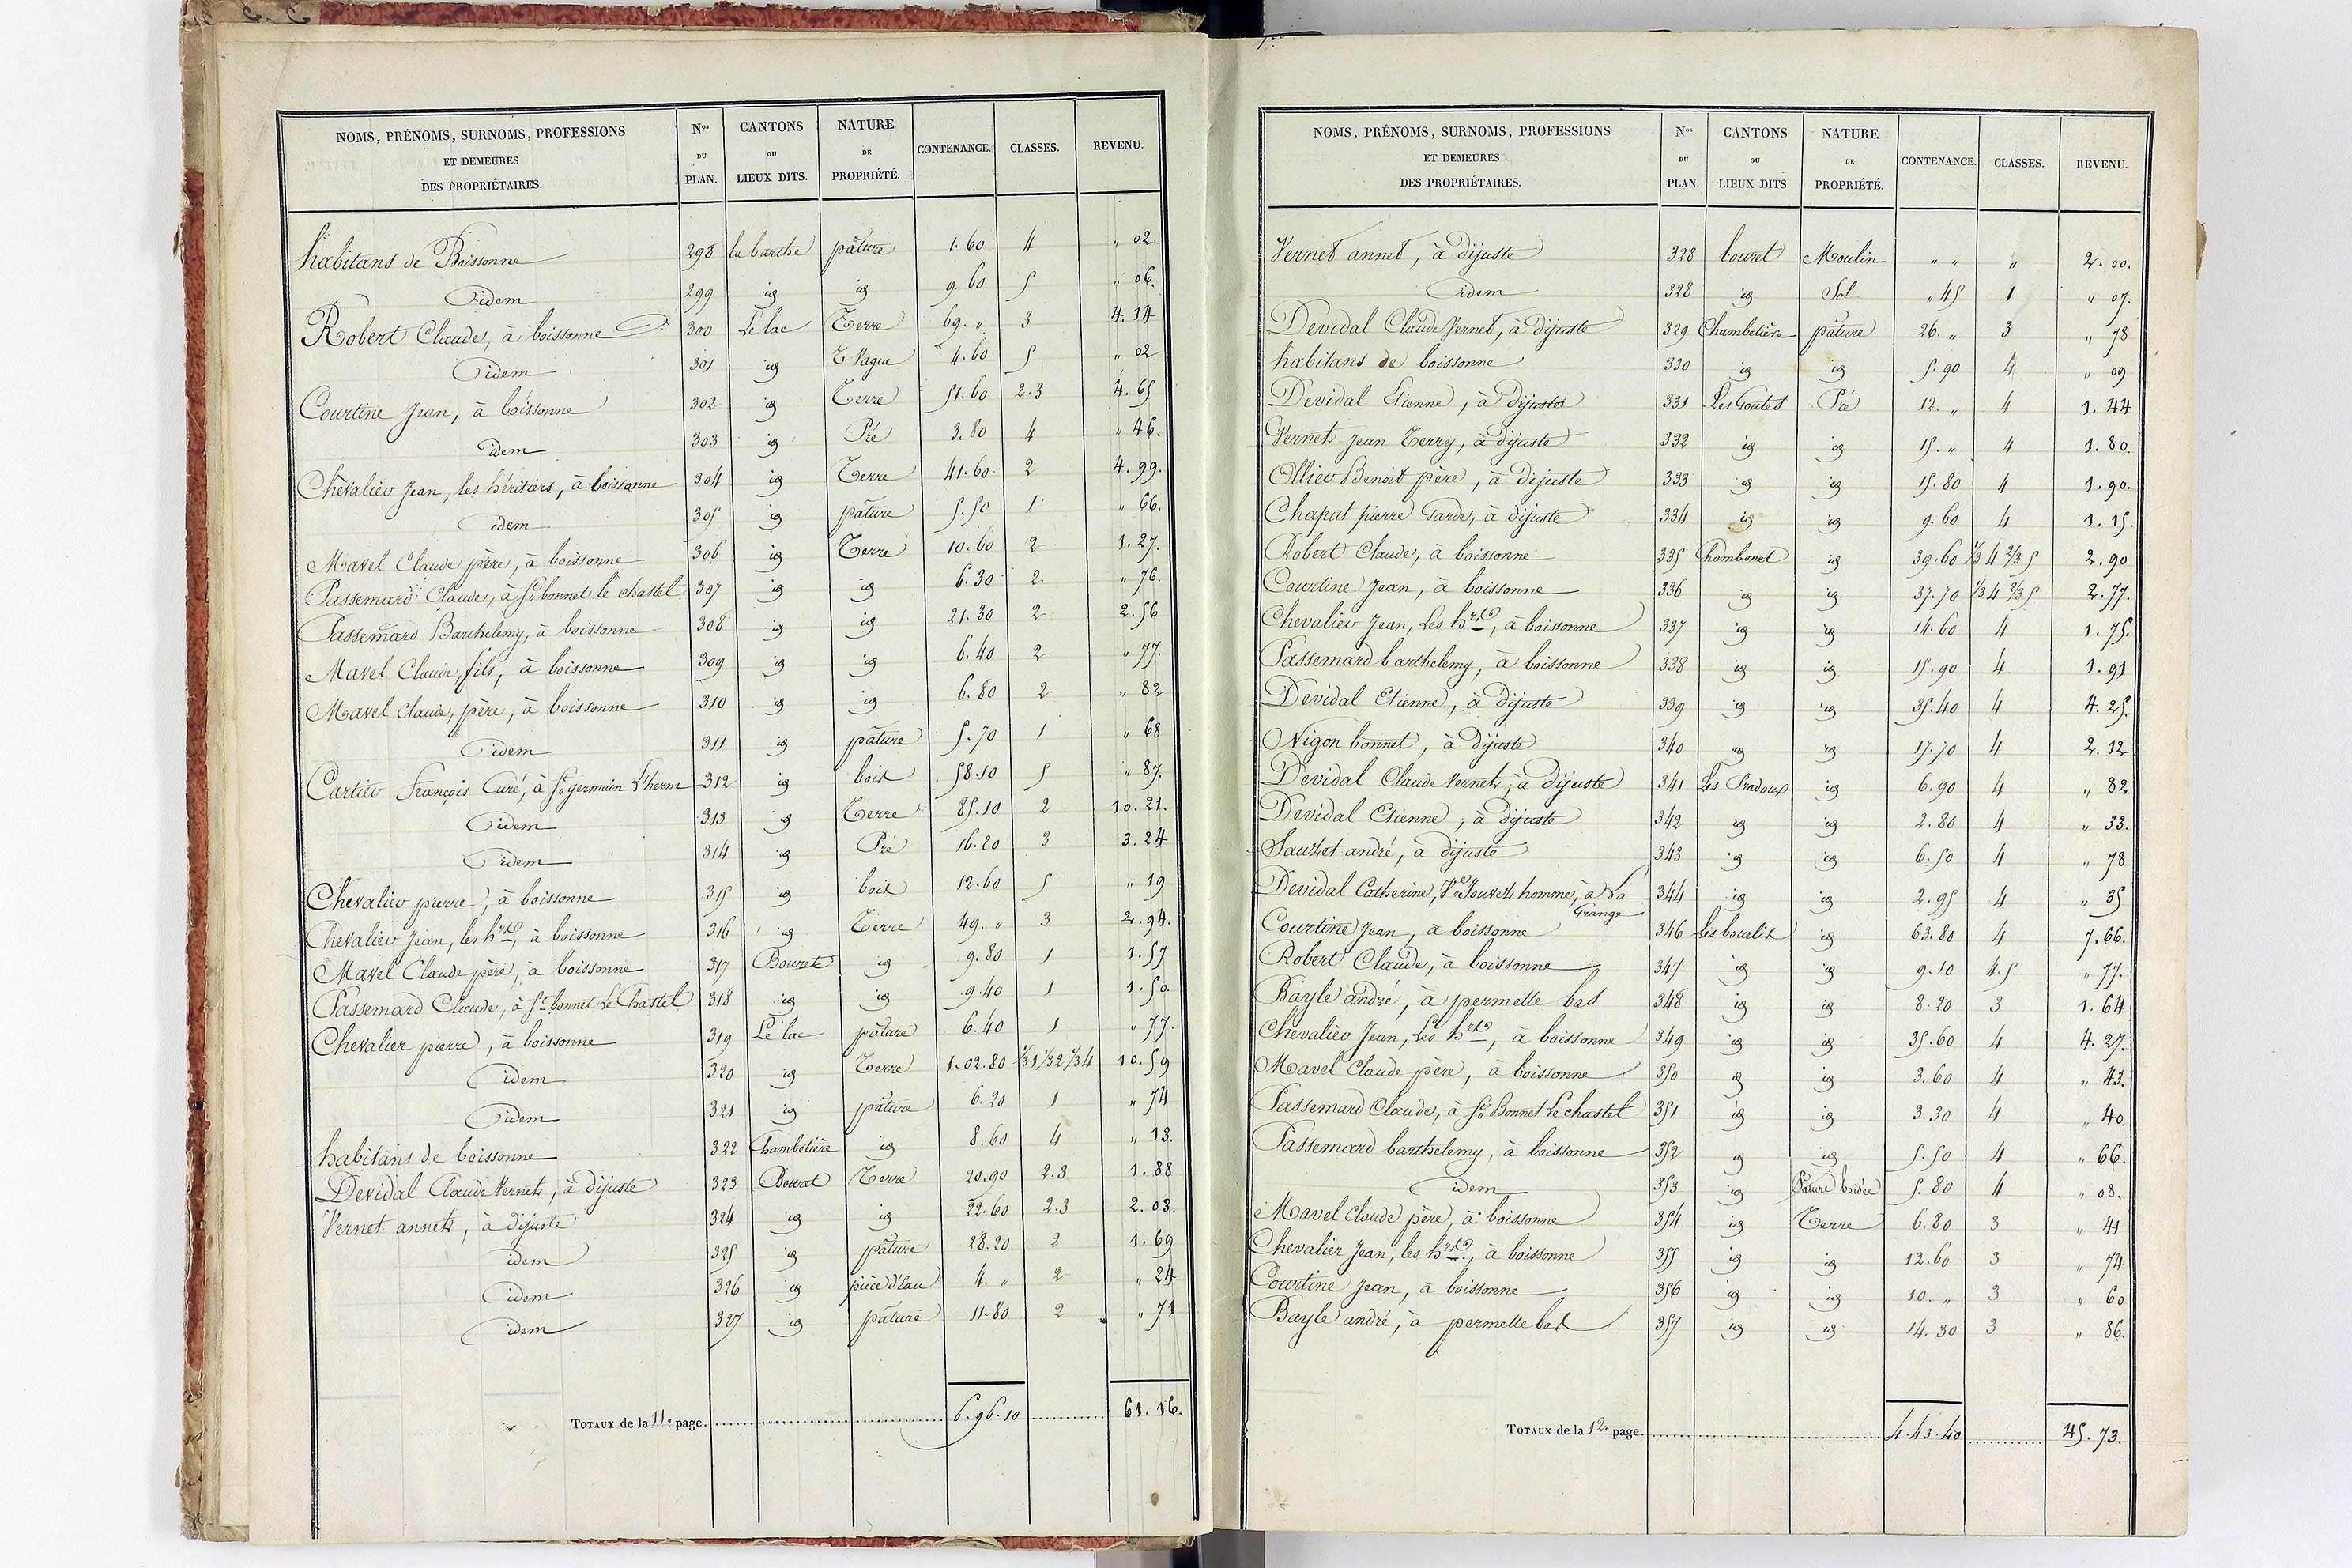 NOMS, PRÉNOMS, SURNOMS, PROFESSIONS ET DEMEURES DES PROPRIÉTAIRES. Nos DU PLAN. CANTONS OU LIEUX DITS. NATURE DE PROPRIÉTÉ. CONTENANCE. CLASSES. REVENU.
habitans de Boissonne 298 la barthe pâture 1.60 4 " 02
idem 299 id id 9.60 5 " 06.
Robert Claude, à boissonne 300 Le lac Terre 69. " 3 4.14
idem 301 id T Vague 4.60 5 " 02
Courtine Jean, à boissonne 302 id Terre 51.60 2.3 4.65
idem 303 id Pré 3.80 4 " 46.
Chevalier Jean, les héritiers, à boissonne 304 id Terre 41.60 2 4.99.
idem 305 id pâture 5.50 1 " 66.
Mavel Claude père, à boissonne 306 id Terre 10.60 2 1.27.
Passemard Claude, à St bonnet le chastel 307 id id 6.30 2 " 76.
Passemard Barthelemy, à boissonne 308 id id 21.30 2 2.56
Mavel Claude, fils, à boissonne 309 id id 6.40 2 " 77.
Mavel Claude, père, à boissonne 310 id id 6.80 2 " 82
idem 311 id pâture 5.70 1 " 68
Cartier François Curé, à St germain L'herm 312 id bois 58.10 5 " 87.
idem 313 id Terre 85.10 2 10.21.
idem 314 id Pré 16.20 3 3.24
Chevalier pierre, à boissonne 315 id bois 12.60 5 " 19
Chevalier Jean, les hrs, à boissonne 316 id Terre 49. " 3 2.94.
Mavel Claude père, à boissonne 317 Bouret id 9.80 1 1.57
Passemard Claude, à St bonnet Le Chastel 318 id id 9.40 1 1.50
Chevalier pierre, à boissonne 319 Le lac pâture 6.40 1 " 77.
idem 320 id Terre 1.02.80 1/3 1 1/3 2 1/3 4 10.59
idem 321 id pâture 6.20 1 " 74
habitans de boissonne 322 Chambetière id 8.60 4 " 13.
Devidal Claude Vernet, à dijuste 323 Bouret Terre 20.90 2.3 1.88
Vernet annet, à dijuste 324 id id 22.60 2.3 2.03.
idem 325 id pâture 28.20 2 1.69
idem 326 id pièce d'Eau 4. " 2 " 24
idem 327 id pâture 11.80 2 " 71
TOTAUX de la 11e page. 6.96.10 61.16.
NOMS, PRÉNOMS, SURNOMS, PROFESSIONS ET DEMEURES DES PROPRIÉTAIRES. Nos DU PLAN. CANTONS OU LIEUX DITS. NATURE DE PROPRIÉTÉ. CONTENANCE. CLASSES. REVENU.
Vernet annet, à dijuste 328 bouret Moulin " " " 2.00.
idem 328 id Sol " 45 1 " 07.
Devidal Claude Vernet, à dijuste 329 Chambetière pâture 26. " 3 " 78
habitans de boissonne 330 id id 5.90 4 " 09
Devidal Etienne, à dijuste 331 Les Goutes Pré 12. " 4 1.44
Vernet Jean Terry, à dijuste 332 id id 15. " 4 1.80.
Ollier Benoit père, à dijuste 333 id id 15.80 4 1.90.
Chaput pierre Garde, à dijuste 334 id id 9.60 4 1.15.
Robert Claude, à boissonne 335 Chambonet id 39.60 1/3 4 2/3 5 2.90
Courtine Jean, à boissonne 336 id id 37.70 1/3 4 2/3 5 2.77.
Chevalier Jean, Les hrs, à boissonne 337 id id 14.60 4 1.75.
Passemard barthelemy, à boissonne 338 id id 15.90 4 1.91
Devidal Etienne, à dijuste 339 id id 35.40 4 4.25.
Nigon bonnet, à dijuste 340 id id 17.70 4 2.12
Devidal Claude Vernet, à dijuste 341 Les Pradoux id 6.90 4 " 82
Devidal Etienne, à dijuste 342 id id 2.80 4 " 33.
Sauzet andré, à dijuste 343 id id 6.50 4 " 78
Devidal Catherine, Ve Jouvet homme, à La Grange 344 id id 2.95 4 " 35
Courtine Jean, à boissonne 346 Les bouélis id 63.80 4 7.66.
Robert Claude, à boissonne 347 id id 9.10 4.5 " 77.
Bayle andré, à permelle bas 348 id id 8.20 3 1.64
Chevalier Jean, Les hrs, à boissonne 349 id id 35.60 4 4.27.
Mavel Claude père, à boissonne 350 id id 3.60 4 " 43.
Passemard Claude, à St Bonnet Le chastel 351 id id 3.30 4 " 40.
Passemard barthelemy, à boissonne 352 id id 5.50 4 " 66.
idem 353 id Pature boisée 5.80 4 " 08.
Mavel Claude père, à boissonne 354 id Terre 6.80 3 " 41
Chevalier Jean, les hrs, à boissonne 355 id id 12.60 3 " 74
Courtine Jean, à boissonne 356 id id 10. " 3 " 60
Bayle andré, à permelle bas 357 id id 14.30 3 " 86.
TOTAUX de la 12e page 4.43.40 45.73.